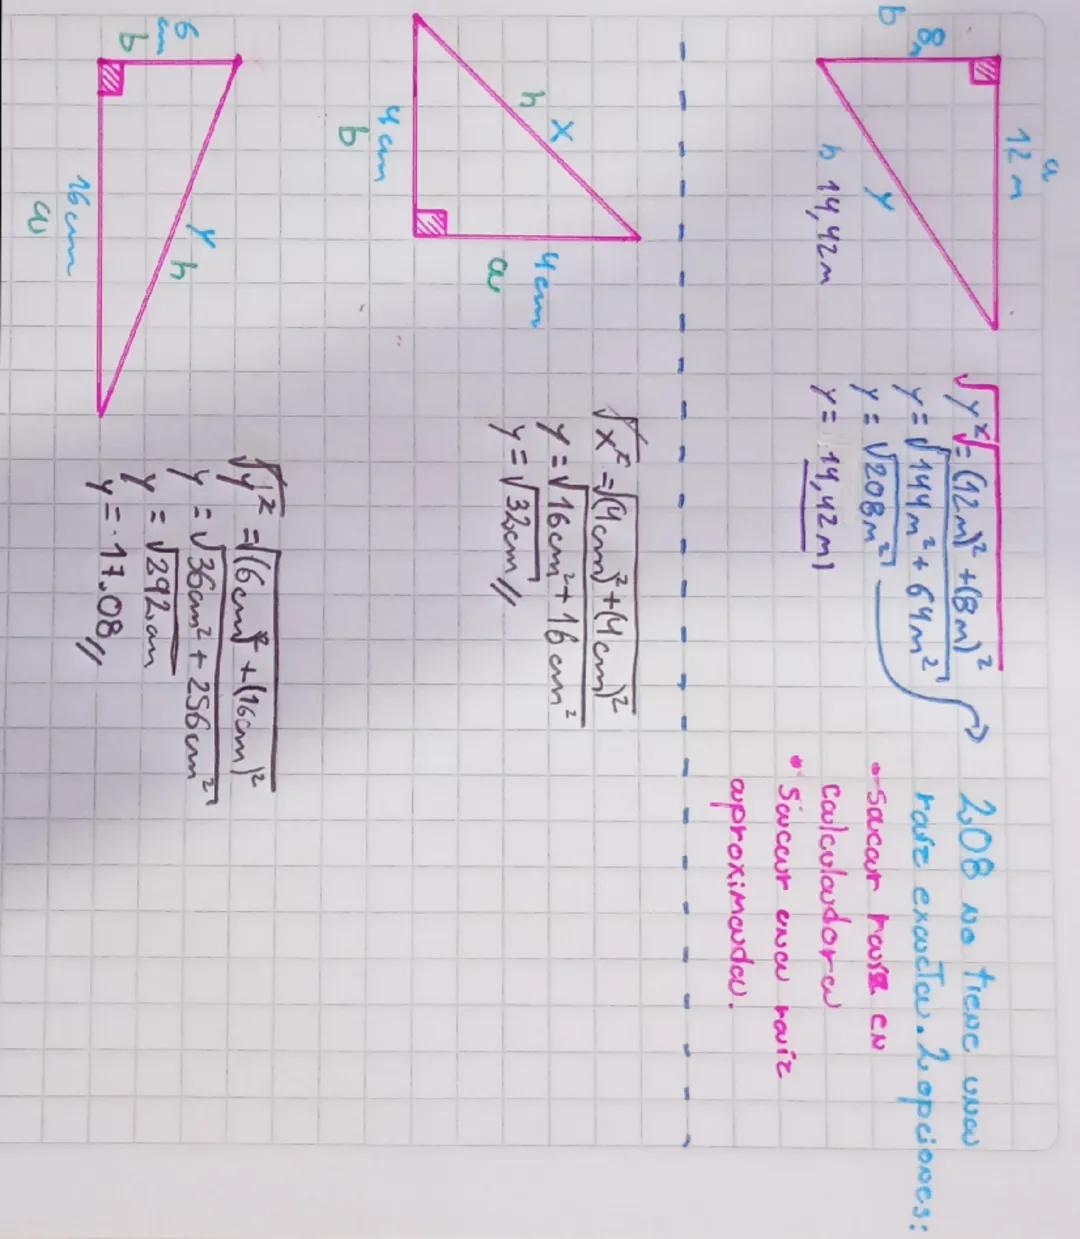 a
12 m
8m
b
y
h 14,42m
√y² = √(12m)² + (8m)²
y = √144m² + 64m²
y = √208m²
y = 14,42m
208 no tiene una
raiz exacta. 2 opciones:
• Sacar raiz en
calculadora
• Sacar una raiz
aproximada.
h x
4cm
a
4cm
b
√x² = √(4cm)² + (4cm)²
y = √16cm² + 16cm²
y = √32cm //
6
cm
b
y
h
16cm
a
√y² = √(6cm)² + (16cm)²
y = √36cm² + 256cm²
y = √292cm
y = 17.08 //